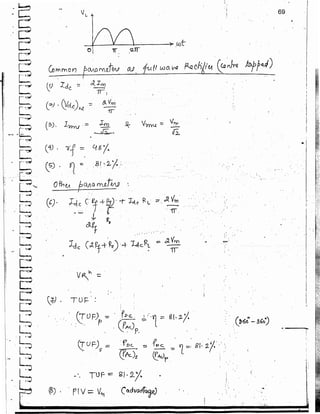 69
V_L
0 π 2π ωt
Common parameters as full wave Rectifier (centre tapped)
(1) I_dc = 2I_m / π
(2). (V_dc)_NL = 2V_m / π
(3). I_rms = I_m / √2 & V_rms = V_m / √2
(4). r.f = 48%
(5). η = 81.2%.
Other parameters :
(6). I_dc (R_f + R_s) + I_dc R_L = 2V_m / π
2R_f R_s
I_dc (2R_f + R_s) + I_dc R_L = 2V_m / π
=
(7). TUF :
(TUF)_p = P_DC / (P_AC)_p = η = 81.2%
(TUF)_s = P_DC / (P_AC)_s = P_DC / (P_AC)_p = η = 81.2%.
∴ TUF = 81.2%.
(8). PIV = V_m (advantage)